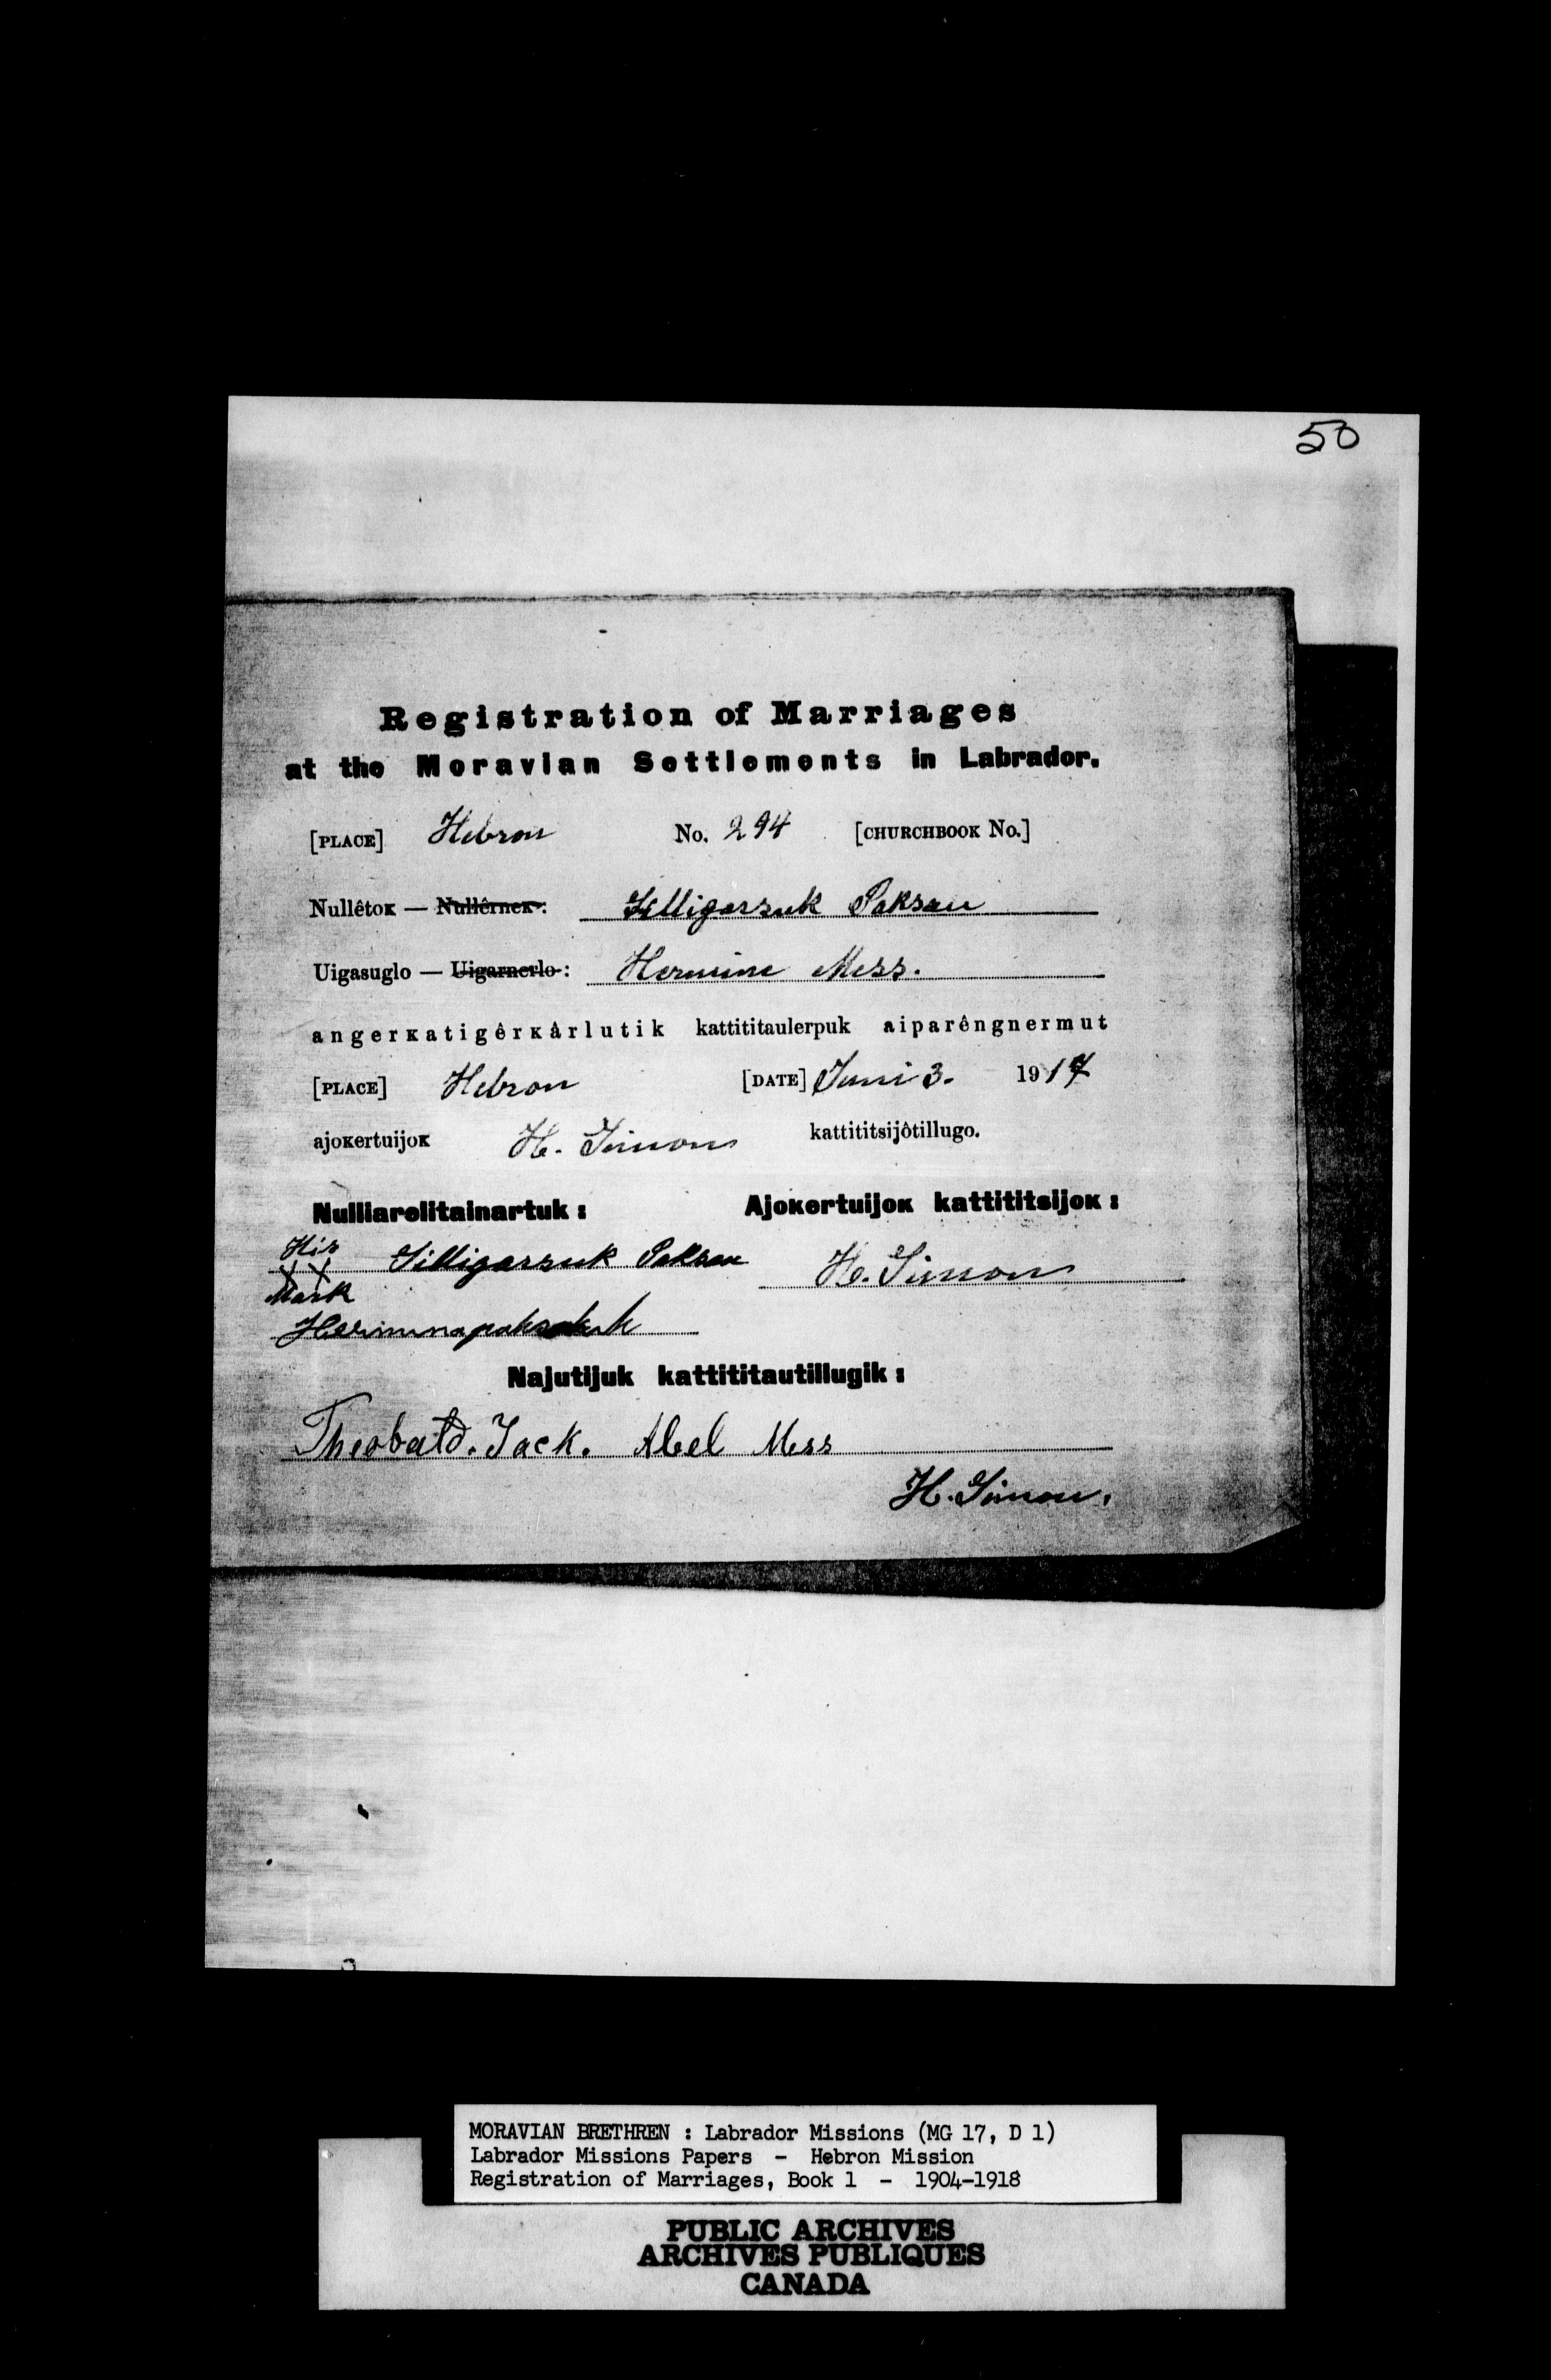 50
Registration of Marriages
at the Moravian Settlements in Labrador.
[PLACE] Hebron No. 294 [CHURCHBOOK No.]
Nullêtoĸ — Nullêrneĸ: Silligarsuk Paksau
Uigasuglo — Uigarnerlo: Hermine Mess.
angerĸatigêrĸârlutik kattititaulerpuk aiparêngnermut
[PLACE] Hebron [DATE] Juni 3. 1917
ajoĸertuijoĸ H. Simon kattititsijôtillugo.
Nulliarelitainartuk: Ajoĸertuijoĸ kattititsijoĸ:
His
XX Silligarsuk Paksau H. Simon
Mark
Najutijuk kattititautillugik:
Theobald. Jack. Abel Mess
H. Simon.
MORAVIAN BRETHREN : Labrador Missions (MG 17, D 1)
Labrador Missions Papers - Hebron Mission
Registration of Marriages, Book 1 - 1904-1918
PUBLIC ARCHIVES
ARCHIVES PUBLIQUES
CANADA